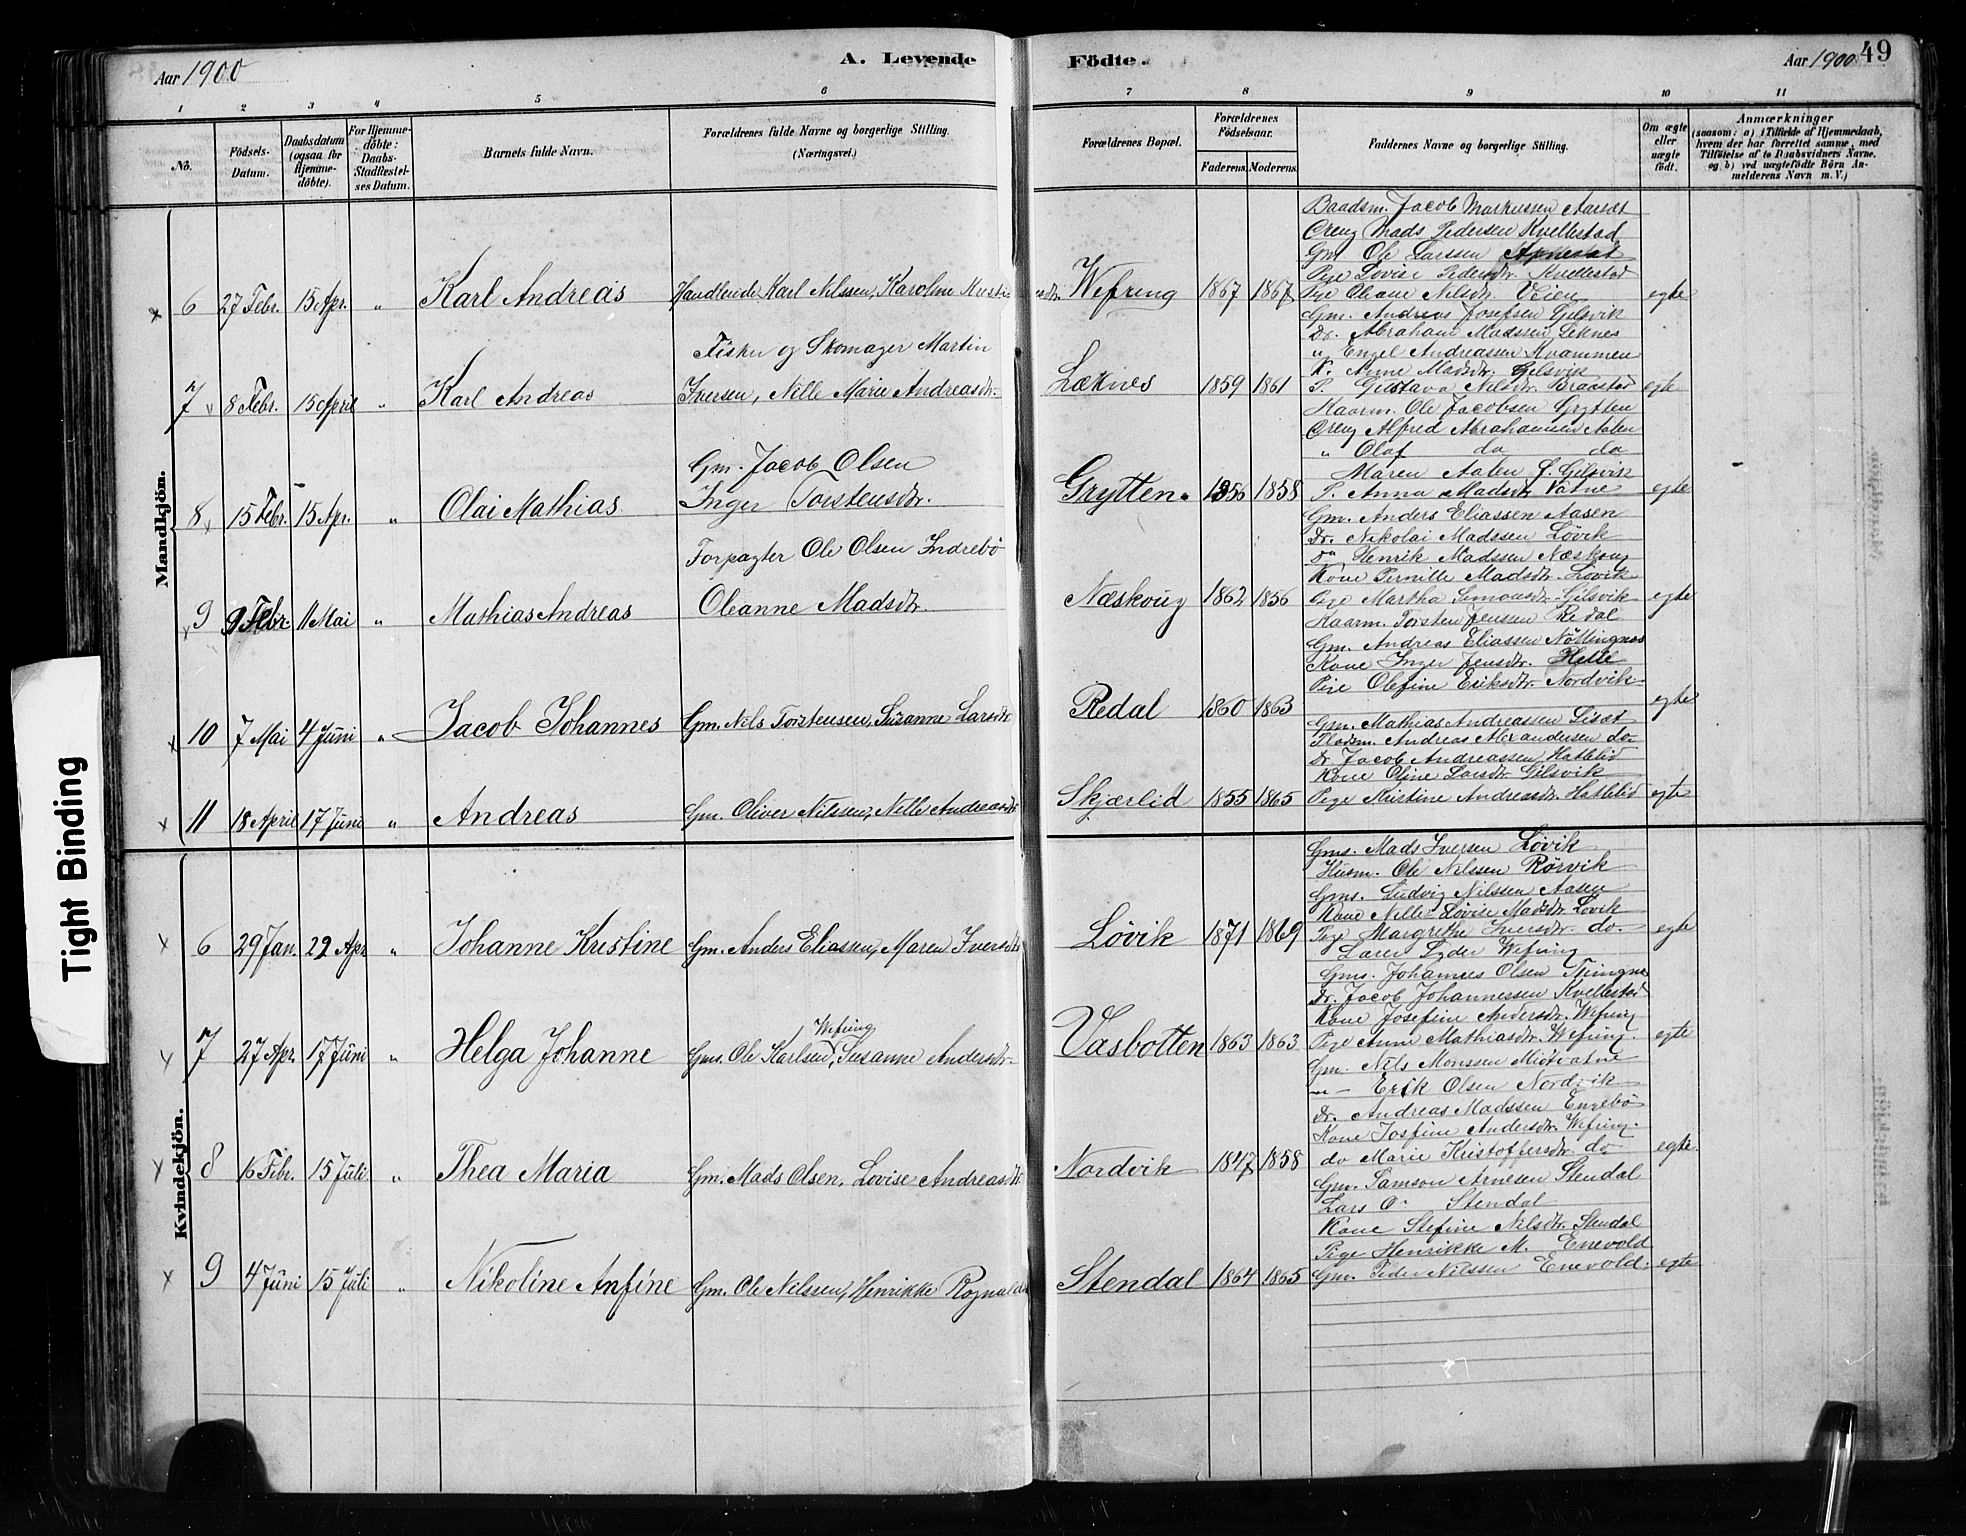 Aar 1900
A. Levende
Födte.
Aar 1900
49
1 2 3 4 5 6 7 8 9 10 11
No.
Födsels-Datum.
Daabsdatum (ogsaa for Hjemmedöbte).
For Hjemmedöbte: Daabs-Stadfæstelses Datum.
Barnets fulde Navn.
Forældrenes fulde Navne og borgerlige Stilling. (Næringsvei.)
Forældrenes Bopæl.
Forældrenes Födselsaar.
Faderens. Moderens.
Faddernes Navne og borgerlige Stilling.
Om ægte eller uægte födt.
Anmærkninger
(saasom: a) i Tilfælde af Hjemmedaab,
hvem der har forrettet samme, med
Tilföielse af to Daabsvidners Navne,
og b) ved uægtefödte Börn An-
melderens Navn m. V.)
Mandkjön.
Baadsm. Jacob Markussen Aarsæt
Mads Pedersen Kvellestad
Gm. Ole Larssen
Pige Lovise Pedersdr. Kvellestad
6 27 Febr. 15 Apr. " Karl Andreas Handlende Karl Nilssen, Karoline Wefring 1867 1867 Pige Oliane Nilsdr. Veien egte
Gm. Andreas Josefsen Gilsvik
Dr. Abraham Madssen Leknes
Fisker og Skomager Martin
" Engel Andreassen Kvammen
K. Anne Madsdr. Gilsvik
7 8 Febr. 15 April " Karl Andreas Iversen, Nille Marie Andreasdr. Læknes 1859 1861 P. Gustava Nilsdr. Braastad egte
Kaarm. Ole Jacobsen Grytten
Alfred Abrahamsen Aalen
" Olaf do do
Gm. Jacob Olsen
Maren Aalen f. Gilsvik
8 15 Febr. 15 Apr. " Olai Mathias Inger Torstensdr. Grytten. 1856 1858 P. Anna Madsdr. Vatne egte
Gm. Anders Eliassen Aasen
Dr. Nikolai Madssen Lövik
Forpagter Ole Olsen Indrebö
do Henrik Madssen Næskoug
Kone Pernille Madsdr. Lövik
9 9 Febr. 11 Mai " Mathias Andreas Oleanne Madsdr. Næskoug 1862 1856 Pige Martha Simonsdr. Gilsvik egte
Kaarm. Torsten Jensen Redal
Gm. Andreas Eliassen Nöttingnes
Kone Inger Jensdr. Helle
Pige Olefine Eriksdr. Nordvik
10 7 Mai 4 Juni " Jacob Johannes Gm. Nils Torstensen, Susanne Larsdr. Redal 1860 1863 egte
Gm. Mathias Andreassen Lisæt
Pladsm. Andreas Alexandersen do
Dr. Jacob Andreassen Hatlelid
Kone Oline Larsdr. Gilsvik
11 18 April 17 Juni " Andreas Gm. Oliver Nilssen, Nille Andreasdr. Skjærlid 1855 1865 Pige Kristine Andreasdr. Hatlelid egte
Kvindekjön.
Gms. Mads Iversen Lövik
Husm. Ole Nilssen Rörvik
Gms. Ludvig Nilssen Aasen
Kone Nille Lovise Madsdr. Lövik
6 29 Jan. 22 Apr. " Johanne Kristine Gm. Anders Eliassen, Maren Iversdr. Lövik 1871 1869 Pige Margrethe Iversdr. do egte
Lyder Wefring
Gms. Johannes Olsen
Dr. Jacob Johannessen Kvellestad
Kone Josefine Andersdr. Wefring
7 27 Apr. 17 Juni " Helga Johanne Gms. Ole Karlsen Wefring, Susanne Andersdr. Vasbotten 1863 1863 Pige Anne Mathiasdr. Wefring. egte
Gm. Nils Monssen Midtvatne
" Erik Olsen Nordvik
Dr. Andreas Madssen Engebö
Kone Josfine Andersdr. Wefring.
8 16 Febr. 15 Juli " Thea Maria Gm. Mads Olsen, Lovise Andreasdr. Nordvik 1847 1858 do Marie Kristoffersdr. do egte
Gm. Samson Arnesen Stendal
Lars O. Stendal
Kone Stefine Nilsdr. Stendal
Pige Henrikke M. Enevold
9 4 Juni 15 Juli " Nikoline Anfine Gm. Ole Nilssen, Henrikke Stendal 1864 1865 Gm. Peder Nilssen Enevold. egte
Tight Binding